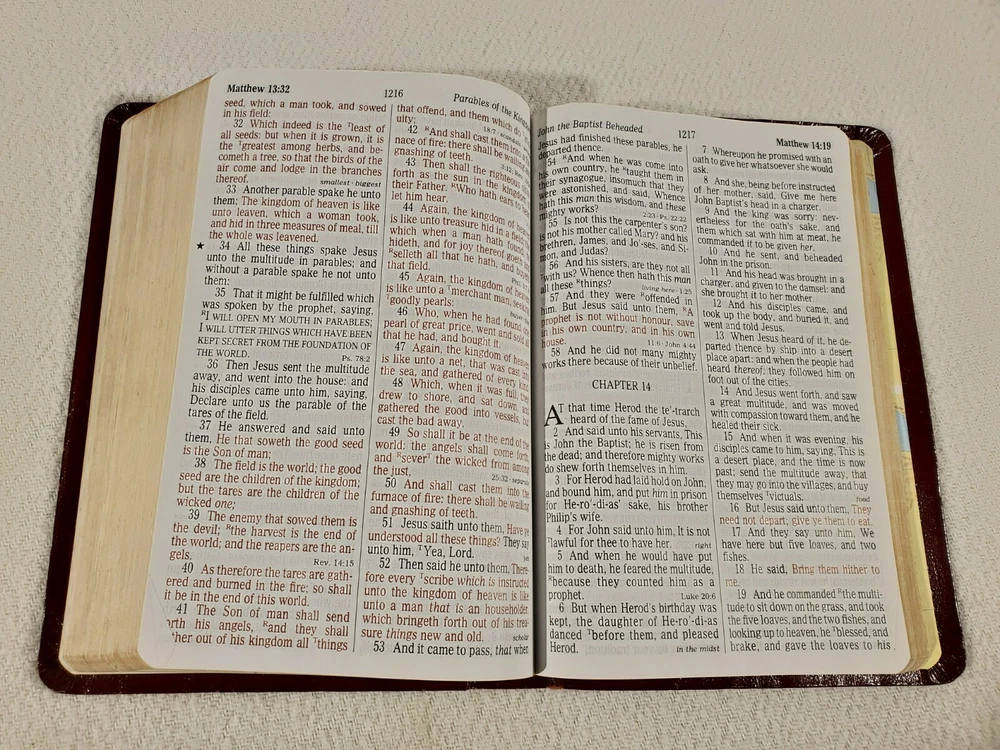 Matthew 13:32
1216
Parables of the
seed, which a man took, and sowed
in his field:
32 Which indeed is the ᵀleast of
all seeds: but when it is grown, it is
the ᵀgreatest among herbs, and be-
cometh a tree, so that the birds of the
air come and lodge in the branches
thereof.
smallest · biggest
33 Another parable spake he unto
them; The kingdom of heaven is like
unto leaven, which a woman took,
and hid in three measures of meal, till
the whole was leavened.
★ 34 All these things spake Jesus
unto the multitude in parables; and
without a parable spake he not unto
them:
35 That it might be fulfilled which
was spoken by the prophet, saying,
ᴿI WILL OPEN MY MOUTH IN PARABLES;
I WILL UTTER THINGS WHICH HAVE BEEN
KEPT SECRET FROM THE FOUNDATION OF
THE WORLD.
Ps. 78:2
36 Then Jesus sent the multitude
away, and went into the house: and
his disciples came unto him, saying,
Declare unto us the parable of the
tares of the field.
37 He answered and said unto
them, He that soweth the good seed
is the Son of man;
38 The field is the world; the good
seed are the children of the kingdom;
but the tares are the children of the
wicked one;
39 The enemy that sowed them is
the devil; ᴿthe harvest is the end of
the world; and the reapers are the an-
gels.
Rev. 14:15
40 As therefore the tares are gath-
ered and burned in the fire; so shall
it be in the end of this world.
41 The Son of man shall send
forth his angels, ᴿand they shall
gather out of his kingdom all ᵀthings
that offend, and them which do
uity;
42 ᴿAnd shall cast them into a
nace of fire: there shall be
gnashing of teeth.
43 Then shall the righteous
forth as the sun in the kingdom
their Father. ᴿWho hath ears to
let him hear.
44 Again, the kingdom of
is like unto treasure hid in a field;
which when a man hath found,
hideth, and for joy thereof
ᴿselleth all that he hath, and
that field.
45 Again, the kingdom of
is like unto a ᵀmerchant man,
ᵀgoodly pearls:
46 Who, when he had found
pearl of great price, went and sold
that he had, and bought it.
47 Again, the kingdom of
is like unto a net, that was cast
the sea, and gathered of every kind
48 Which, when it was full, they
drew to shore, and sat down, and
gathered the good into vessels, but
cast the bad away.
49 So shall it be at the end of the
world: the angels shall come forth,
and ᴿseverᵀ the wicked from among
the just,
25:32 · separate
50 And shall cast them into the
furnace of fire: there shall be wailing
and gnashing of teeth.
51 Jesus saith unto them, Have ye
understood all these things? They say
unto him, ᵀYea, Lord.
yes
52 Then said he unto them, There-
fore every ᵀscribe which is instructed
unto the kingdom of heaven is like
unto a man that is an householder,
which bringeth forth out of his trea-
sure things new and old.
scholar
53 And it came to pass, that when
John the Baptist Beheaded
1217
Matthew 14:19
Jesus had finished these parables, he
departed thence.
54 ᴿAnd when he was come into
his own country, he ᴿtaught them in
their synagogue, insomuch that they
were astonished, and said, Whence
hath this man this wisdom, and these
mighty works?
2:23 · Ps. 22:22
55 Is not this the carpenter's son?
is not his mother called Mary? and his
brethren, James, and Jo'-ses, and Si-
mon, and Judas?
56 And his sisters, are they not all
ᵀwith us? Whence then hath this man
all these ᴿthings?
(living here) · 1:25
57 And they were ᴿoffended in
him. But Jesus said unto them, ᴿA
prophet is not without honour, save
in his own country, and in his own
house.
11:6 · John 4:44
58 And he did not many mighty
works there because of their unbelief.
CHAPTER 14
AT that time Herod the te'-trarch
heard of the fame of Jesus,
2 And said unto his servants, This
is John the Baptist; he is risen from
the dead; and therefore mighty works
do shew forth themselves in him.
3 For Herod had laid hold on John,
and bound him, and put him in prison
for He-ro'-di-as' sake, his brother
Philip's wife.
4 For John said unto him, It is not
ᵀlawful for thee to have her.
right
5 And when he would have put
him to death, he feared the multitude,
ᴿbecause they counted him as a
prophet.
Luke 20:6
6 But when Herod's birthday was
kept, the daughter of He-ro'-di-as
danced ᵀbefore them, and pleased
Herod.
in the midst
7 Whereupon he promised with an
oath to give her whatsoever she would
ask.
8 And she, being before instructed
of her mother, said, Give me here
John Baptist's head in a charger.
9 And the king was sorry: nev-
ertheless for the oath's sake, and
them which sat with him at meat, he
commanded it to be given her.
10 And he sent, and beheaded
John in the prison.
11 And his head was brought in a
charger, and given to the damsel: and
she brought it to her mother.
12 And his disciples came, and
took up the body, and buried it, and
went and told Jesus.
13 When Jesus heard of it, he de-
parted thence by ship into a desert
place apart: and when the people had
heard thereof, they followed him on
foot out of the cities.
14 And Jesus went forth, and saw
a great multitude, and was moved
with compassion toward them, and he
healed their sick.
15 And when it was evening, his
disciples came to him, saying, This is
a desert place, and the time is now
past; send the multitude away, that
they may go into the villages, and buy
themselves ᵀvictuals.
food
16 But Jesus said unto them, They
need not depart; give ye them to eat.
17 And they say unto him, We
have here but five loaves, and two
fishes.
18 He said, Bring them hither to
me.
19 And he commanded ᴿthe multi-
tude to sit down on the grass, and took
the five loaves, and the two fishes, and
looking up to heaven, he ᵀblessed, and
brake, and gave the loaves to his